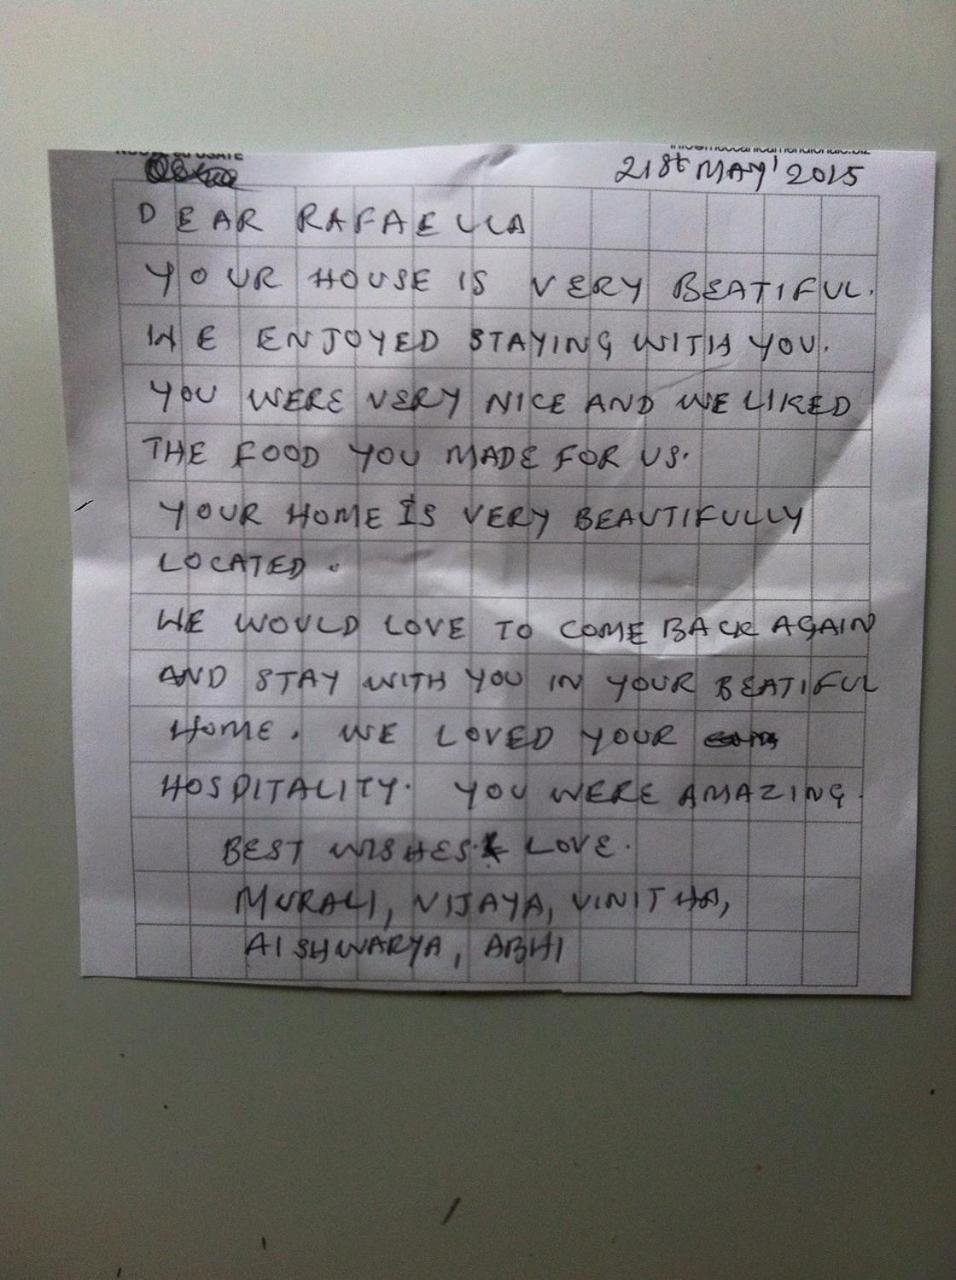 21st MAY' 2015
DEAR RAFAELLA
YOUR HOUSE IS VERY BEATIFUL.
WE ENJOYED STAYING WITH YOU.
YOU WERE VERY NICE AND WE LIKED
THE FOOD YOU MADE FOR US.
YOUR HOME IS VERY BEAUTIFULLY
LOCATED.
WE WOULD LOVE TO COME BACK AGAIN
AND STAY WITH YOU IN YOUR BEATIFUL
HOME. WE LOVED YOUR
HOSPITALITY. YOU WERE AMAZING.
BEST WISHES & LOVE.
MURALI, VIJAYA, VINITHA,
AISHWARYA, ABHI